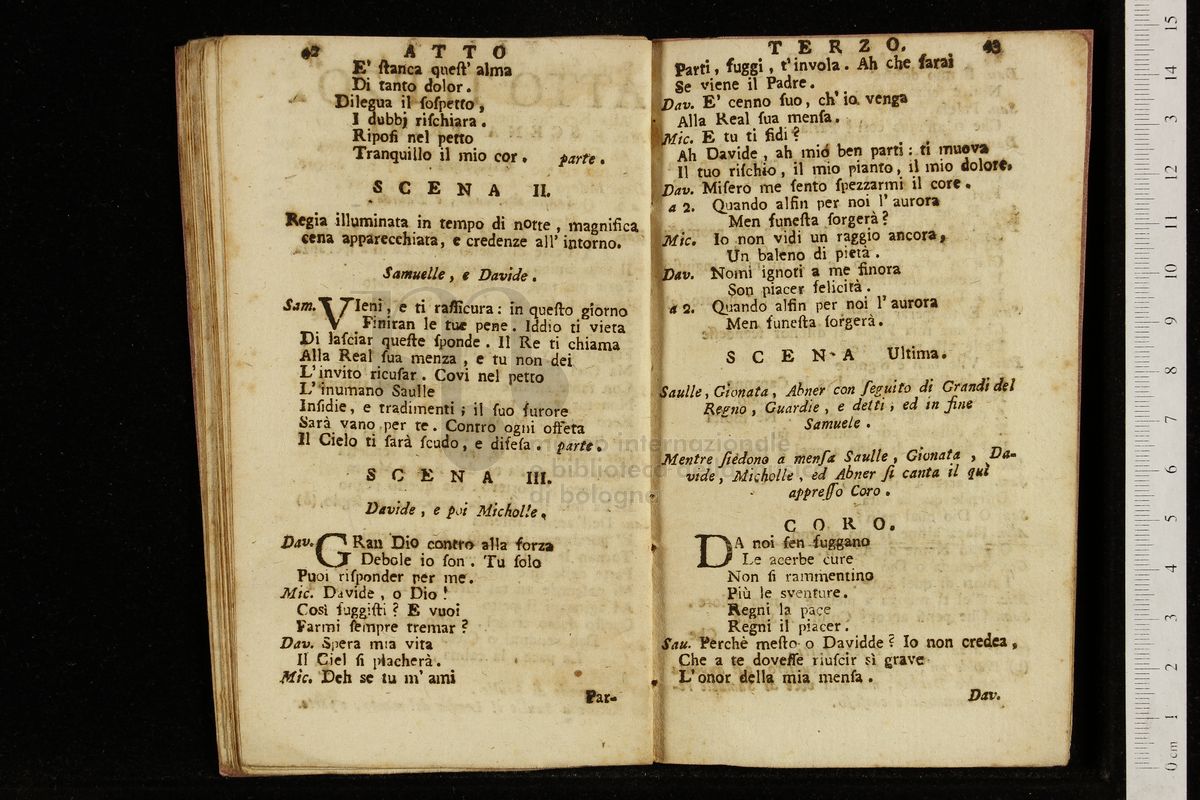 42 ATTO
E' ſtanca queſt' alma
Di tanto dolor.
Dilegua il ſoſpetto,
I dubbj riſchiara.
Ripoſi nel petto
Tranquillo il mio cor. parte.
SCENA II.
Regia illuminata in tempo di notte, magnifica
cena apparecchiata, e credenze all' intorno.
Samuelle, e Davide.
Sam. VIeni, e ti raſſicura: in queſto giorno
Finiran le tue pene. Iddio ti vieta
Di laſciar queſte ſponde. Il Re ti chiama
Alla Real ſua menza, e tu non dei
L'invito ricuſar. Covi nel petto
L' inumano Saulle
Inſidie, e tradimenti; il ſuo furore
Sarà vano per te. Contro ogni offeſa
Il Cielo ti ſarà ſcudo, e difeſa. parte.
SCENA III.
Davide, e poi Micholle.
Dav. GRan Dio contro alla forza
Debole io ſon. Tu ſolo
Puoi riſponder per me.
Mic. Davide, o Dio!
Così fuggiſti? E vuoi
Farmi ſempre tremar?
Dav. Spera mia vita
Il Ciel ſi placherà.
Mic. Deh se tu m' ami
Par-
TERZO. 43
Parti, fuggi, t'invola. Ah che farai
Se viene il Padre.
Dav. E' cenno ſuo, ch' io venga
Alla Real ſua menſa.
Mic. E tu ti fidi?
Ah Davide, ah mio ben parti: ti muova
Il tuo riſchio, il mio pianto, il mio dolore.
Dav. Miſero me ſento ſpezzarmi il core.
a 2. Quando alfin per noi l' aurora
Men funeſta ſorgerà?
Mic. Io non vidi un raggio ancora,
Un baleno di pietà.
Dav. Nomi ignoti a me finora
Son piacer felicità.
a 2. Quando alfin per noi l' aurora
Men funeſta ſorgerà.
SCENA Ultima.
Saulle, Gionata, Abner con ſeguito di Grandi del
Regno, Guardie, e detti; ed in fine
Samuele.
Mentre ſiedono a menſa Saulle, Gionata, Da-
vide, Micholle, ed Abner ſi canta il quì
appreſſo Coro.
CORO.
DA noi ſen fuggano
Le acerbe cure
Non ſi rammentino
Più le sventure.
Regni la pace
Regni il piacer.
Sau. Perchè meſto o Davidde? Io non credea,
Che a te doveſſe riuſcir sì grave
L'onor della mia menſa.
Dav.
museo internazionale
e biblioteca della musica
di bologna
0 cm 1 2 3 4 5 6 7 8 9 10 11 12 13 14 15